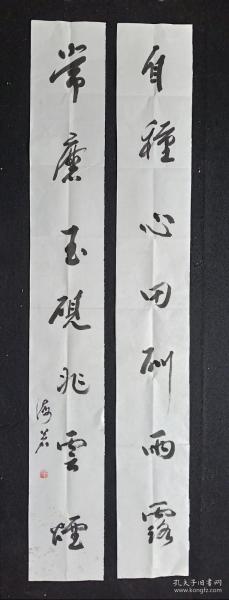 自種心田酬雨露
常磨玉硯兆雲煙
海若
孔夫子旧书网